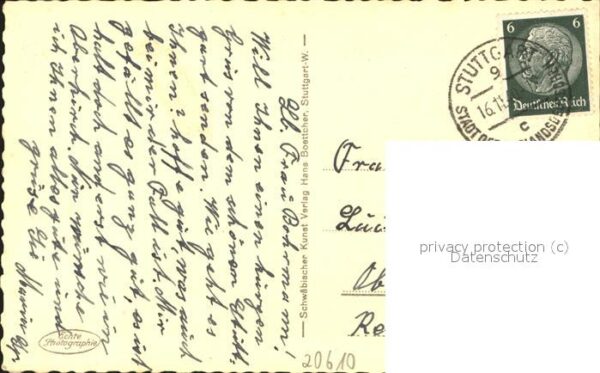 Lb. Frau Bohrmann!
Will Ihnen einen kurzen
Gruß von dem schönen Stuttg.
gart senden. Wie geht es
Ihnen? hoffe gut, was auch
bei mir der Fall ist. Mir
gefällt es ganz gut, es ist
halt doch anderst wie in
Oberkirch. Nun wünsche
ich Ihnen alles gute und
grüße Sie
Echte
Photographie
Schwäbischer Kunst Verlag Hans Boettcher, Stuttgart-W.
6 6
Deutsches Reich
STUTTGART
9
16.11
c
Fra
Ob
Re
privacy protection (c)
Datenschutz
20610